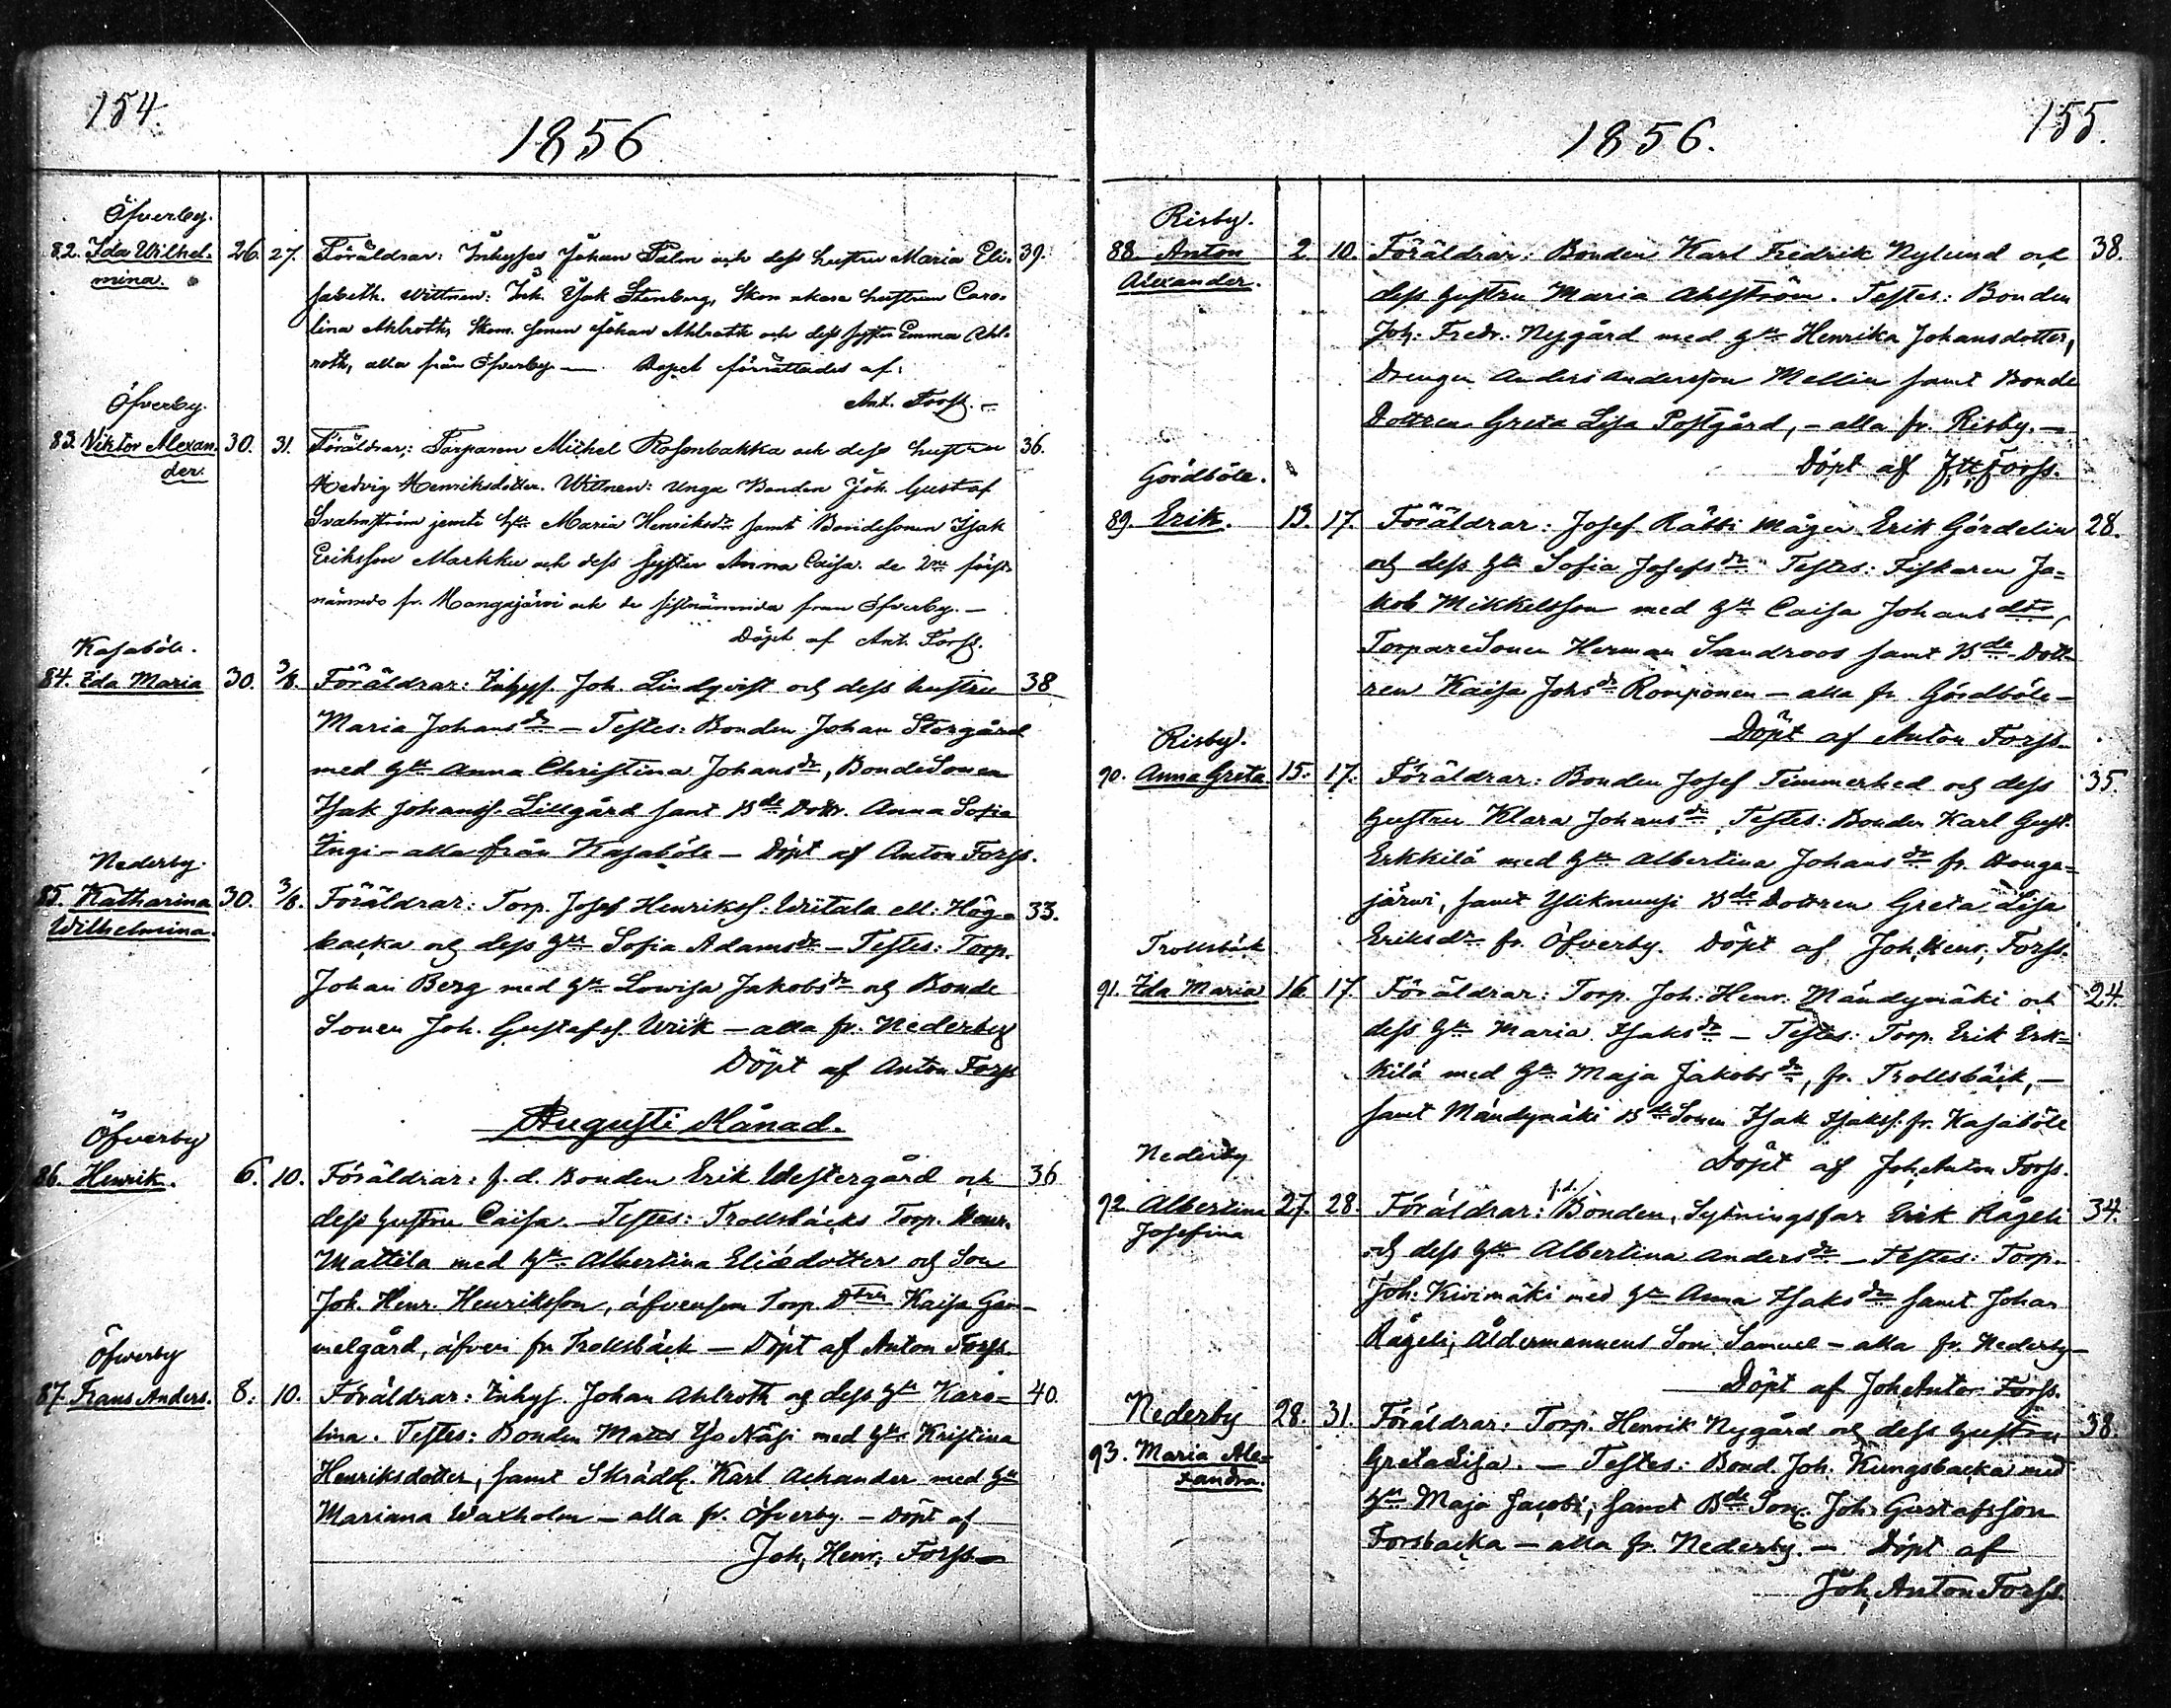 154.
1856
Öfverby.
82. Ida Wilhel- 26. 27. Föräldrar: Inhyses Johan Palm och dess hustru Maria Eli- 39.
mina. sabeth. Wittnen: Inh. Isak Stenberg, Skom akare hustrun Caro-
lina Ahlroth, Skom. sonen Johan Ahlroth och dess syster Emma Ahl-
roth, alla från Öfverby — Dopet förrättades af:
Ant. Forss. —
Öfverby.
83. Viktor Alexan- 30. 31. Föräldrar: Torparen Mikhel Rosenbakka och dess hustru 36.
der. Hedvig Henriksdotter. Wittnen: Unga Bonden Joh. Gustaf
Svahnström jemte Hu Maria Henriksdr samt Bondesonen Isak
Eriksson Markku och dess syster Anna Caisa. de 2ne först-
nämnde fr. Mangsjärvi och de sistnämnda från Öfverby. —
Döpt af Ant. Forss.
Kasaböle.
84. Ida Maria 30. 3/8. Föräldrar: Inhys. Joh. Lindqvist och dess hustru 38
Maria Johansdr — Testes: Bonden Johan Storgård
med Hu Anna Christina Johansdr, BondeSonen
Isak Johanss. Lillgård samt Bde Dottr. Anna Sofia
Ingi — alla från Kasaböle — Döpt af Anton Forss.
Nederby.
85. Katharina 30. 3/8. Föräldrar: Torp. Josef Henrikss: Writala ell: Hög- 33.
Wilhelmina. backa och dess Hu Sofia Adamsdr — Testes: Torp.
Johan Berg med Hu Lowisa Jakobsdr och Bonde
Sonen Joh. Gustafss. Wrik — alla fr. Nederby
Döpt af Anton Forss
Augusti Månad.
Öfverby
86. Henrik. 6. 10. Föräldrar: f. d. Bonden Erik Westergård och 36
dess hustru Caisa. — Testes: Trollsbäcks Torp. Henr.
Mattila med Hu Albertina Eliædotter och Son
Joh. Henr. Henriksson, äfvensom Torp. Dtren Kaisa Gam-
melgård, äfven fr. Trollsbäck — Döpt af Anton Forss.
Öfverby
87. Frans Anders. 8. 10. Föräldrar: Inhys. Johan Ahlroth och dess Hu Karo- 40.
lina. Testes: Bonden Matts Yso Näsi med Hu Kristina
Henriksdotter, samt Skrädd. Karl Achander med Hu
Mariana Waxholm — alla fr. Öfverby. — Döpt af
Joh. Henr. Forss —
155.
1856.
Risby.
88. Anton 2. 10. Föräldrar: Bonden Karl Fredrik Nylund och 38.
Alexander. dess hustru Maria Ahlström. Testes: Bonden
Joh. Fredr. Nygård med Hu Henrika Johansdotter,
Drengen Anders Andersson Mellin samt Bonde
Dottren Greta Lisa Postgård, — alla fr. Risby. —
Döpt af Forss.
Gördböle.
89. Erik. 13. 17. Föräldrar: Josef Räbbi mågen Erik Gördelin 28.
och dess Hu Sofia Josefsdr Testes: Fiskaren Ja-
kob Mikkelsson med Hu Caisa Johansdtr,
TorpareSonen Herman Sandroos samt Bde-Dott-
ren Kaisa Johsdr Romponen — alla fr. Gördböle —
Döpt af Anton Forss.
Risby.
90. Anna Greta 15. 17. Föräldrar: Bonden Josef Timmerhed och dess 35.
hustru Klara Johansdr, Testes: Bonden Karl Gust.
Erkkilä med Hu Albertina Johansdr fr. Honga-
järwi, samt Yliknuusi Bde Dottren Greta Lisa
Eriksdr fr. Öfverby. Döpt af Joh. Henr. Forss.
Trollsbäck
91. Ida Maria 16 17. Föräldrar: Torp. Joh. Henr. Mändymäki och 24.
dess Hu Maria Isaksdr — Testes: Torp. Erik Erk-
kilä med Hu Maja Jakobsdr, fr. Trollsbäck, —
samt Mändymäki Bde Sonen Isak Isakss. fr. Kasaböle
Döpt af Joh. Anton Forss.
Nederby
92. Albertina 27. 28. Föräldrar: f.d. Bonden, Sytningsfar Erik Rågeli 34.
Josefina och dess Hu Albertina Andersdr — Testes: Torp.
Joh. Kivimäki med Hu Anna Isaksdr samt Johan
Rågeli, Åldermannens Son Samuel — alla fr. Nederby —
Döpt af Joh. Anton Forss.
Nederby 28. 31. Föräldrar: Torp. Henrik Nygård och dess hustru 38.
93. Maria Ale- Greta Lisa. — Testes: Bond. Joh. Kungsbacka med
xandra. Hu Maja Jacobi, samt Bde Son. Joh. Gustafsson
Forsbacka — alla fr. Nederby. — Döpt af
Joh. Anton Forss.